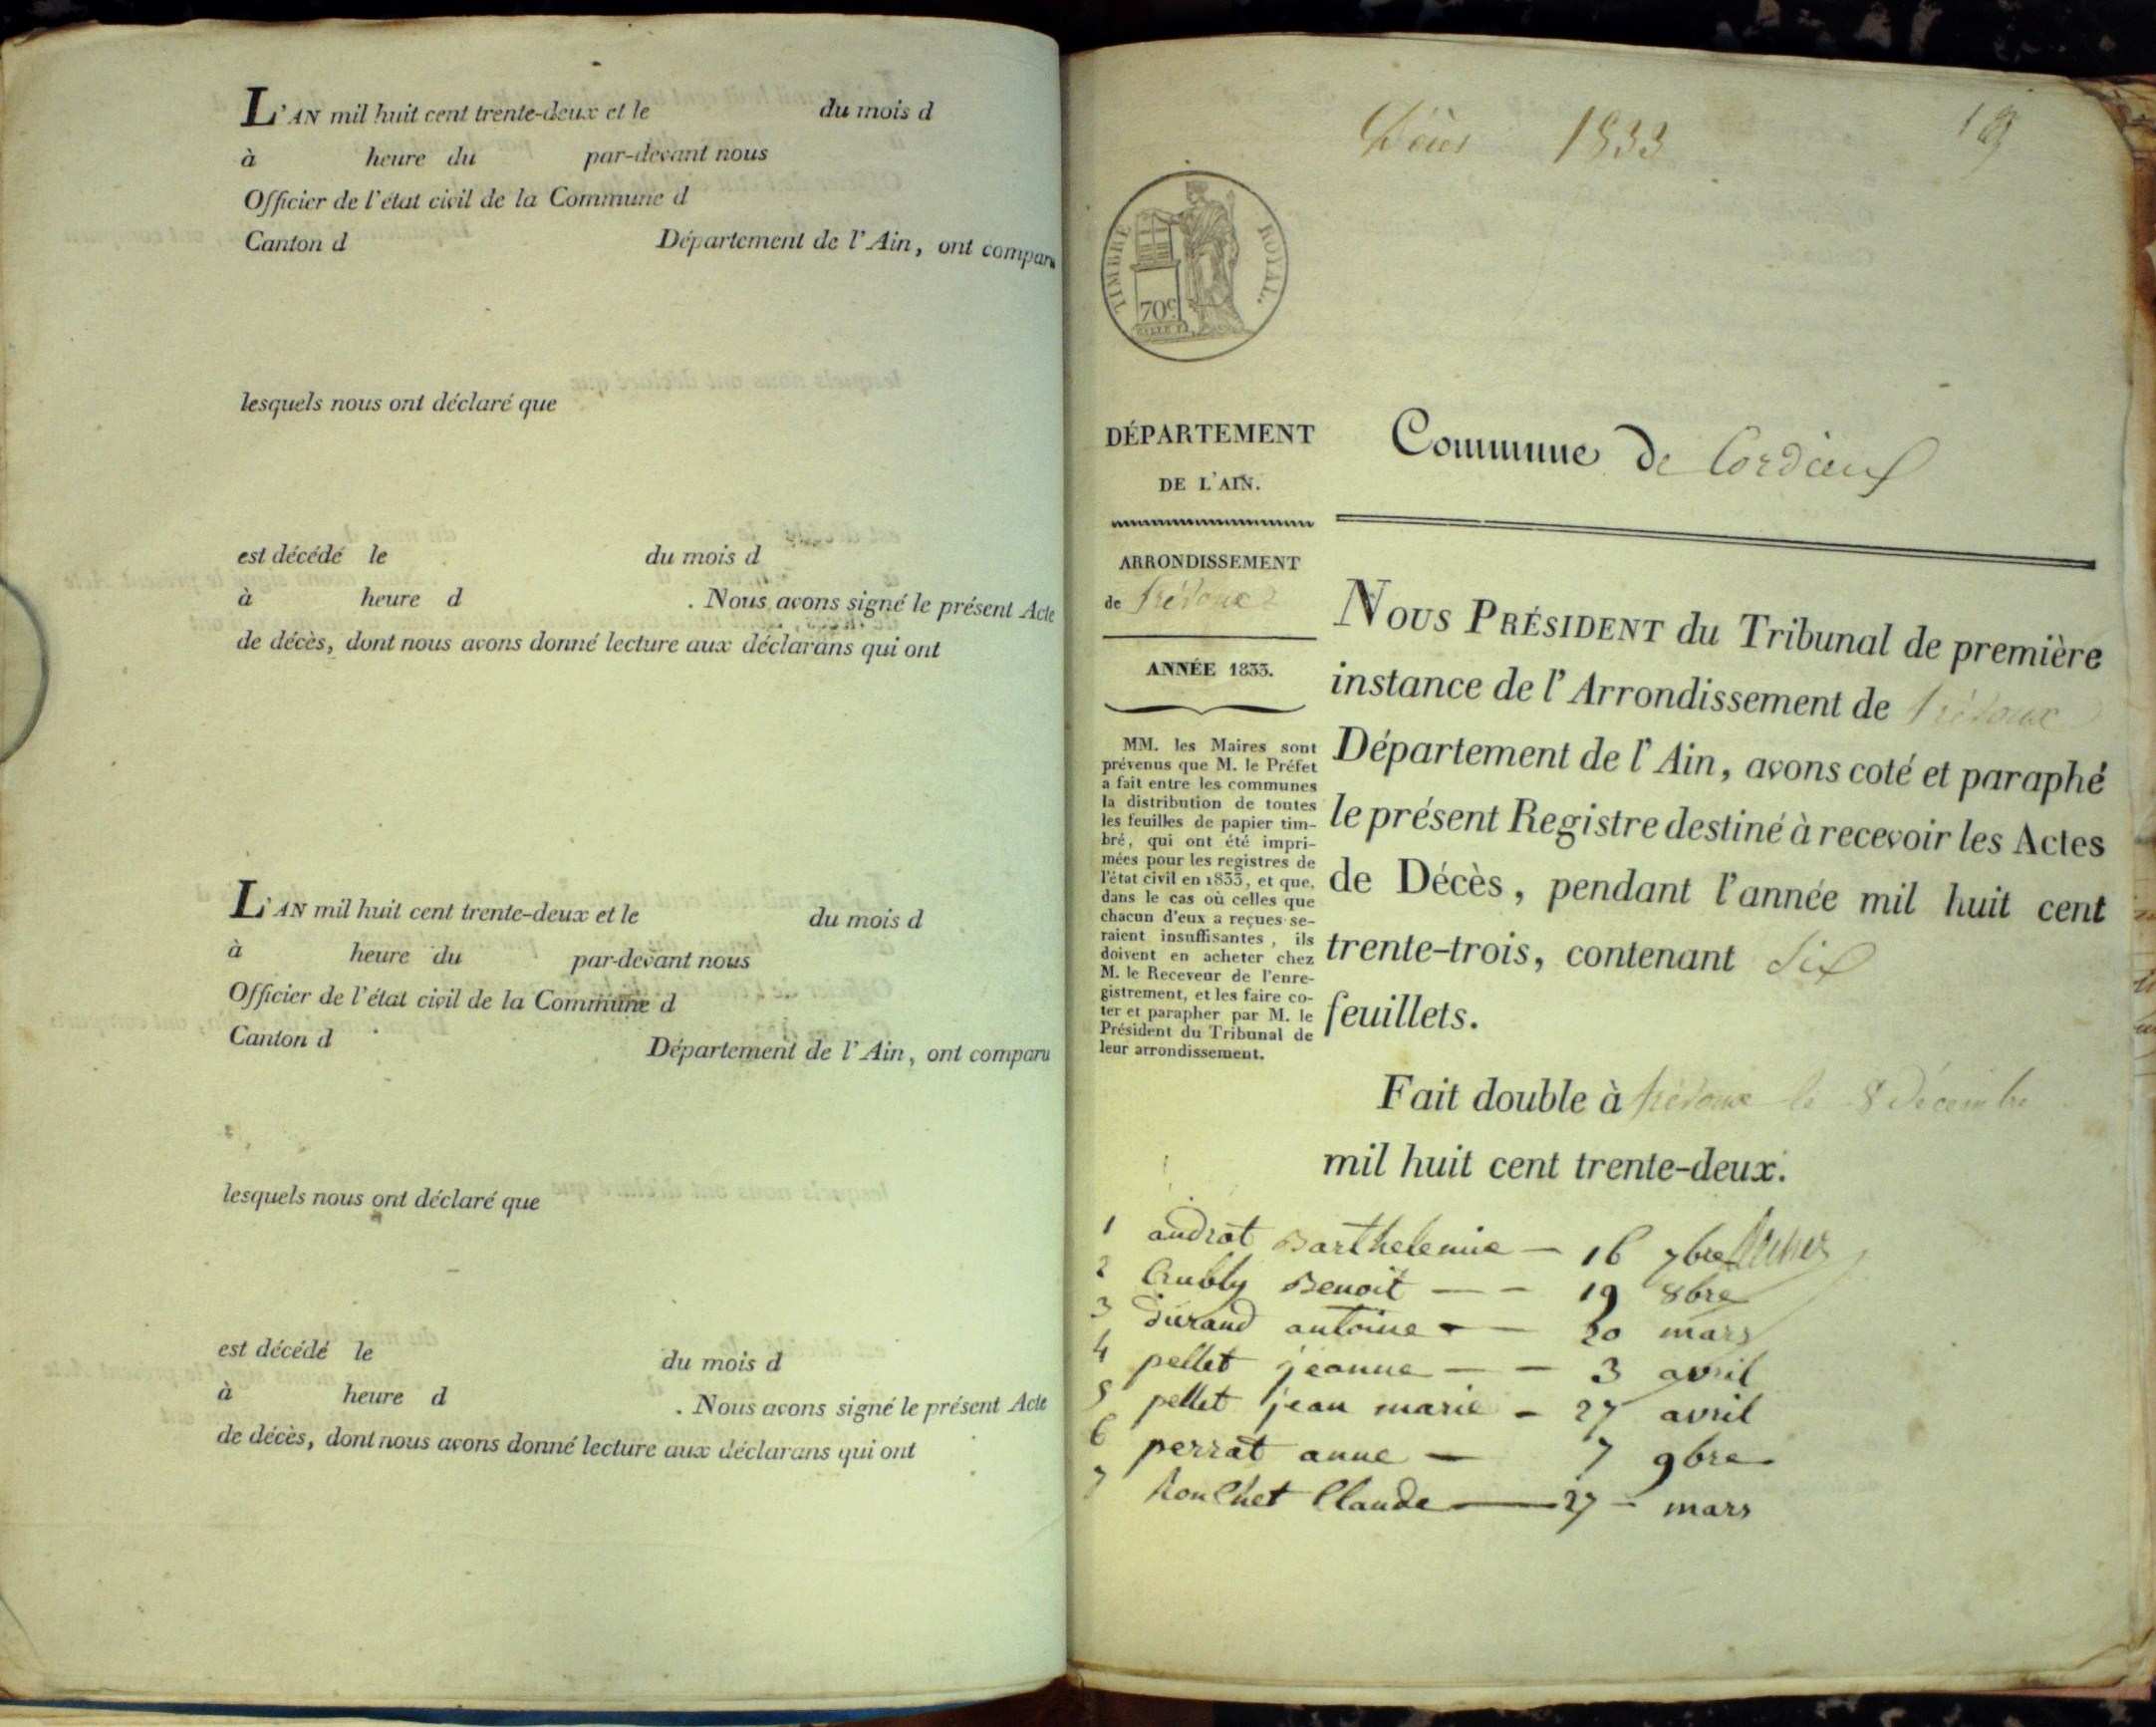 L'AN mil huit cent trente-deux et le du mois d
à heure du par-devant nous
Officier de l'état civil de la Commune d
Canton d Département de l'Ain, ont comparu
lesquels nous ont déclaré que
est décédé le du mois d
à heure d . Nous avons signé le présent Acte
de décès, dont nous avons donné lecture aux déclarans qui ont
L'AN mil huit cent trente-deux et le du mois d
à heure du par-devant nous
Officier de l'état civil de la Commune d
Canton d Département de l'Ain, ont comparu
lesquels nous ont déclaré que
est décédé le du mois d
à heure d . Nous avons signé le présent Acte
de décès, dont nous avons donné lecture aux déclarans qui ont
Décès 1833
TIMBRE ROYAL.
70c
DÉPARTEMENT
DE L'AIN.
ARRONDISSEMENT
de Trévoux
ANNÉE 1833.
MM. les Maires sont
prévenus que M. le Préfet
a fait entre les communes
la distribution de toutes
les feuilles de papier tim-
bré, qui ont été impri-
mées pour les registres de
l'état civil en 1833, et que,
dans le cas où celles que
chacun d'eux a reçues se-
raient insuffisantes, ils
doivent en acheter chez
M. le Receveur de l'enre-
gistrement, et les faire co-
ter et parapher par M. le
Président du Tribunal de
leur arrondissement.
Commune de Cordieux
NOUS PRÉSIDENT du Tribunal de première
instance de l'Arrondissement de Trévoux
Département de l'Ain, avons coté et paraphé
le présent Registre destiné à recevoir les Actes
de Décès, pendant l'année mil huit cent
trente-trois, contenant Six
feuillets.
Fait double à Trévoux le 8 décembre
mil huit cent trente-deux.
1 andrat Barthelemie — 16 7bre
2 Aubly Benoit — — 19 8bre
3 Durand antoine — — 20 mars
4 pellet jeanne — — 3 avril
5 pellet jean marie — 27 avril
6 perrat anne — 7 9bre
7 Ronchet Claude — 27 — mars